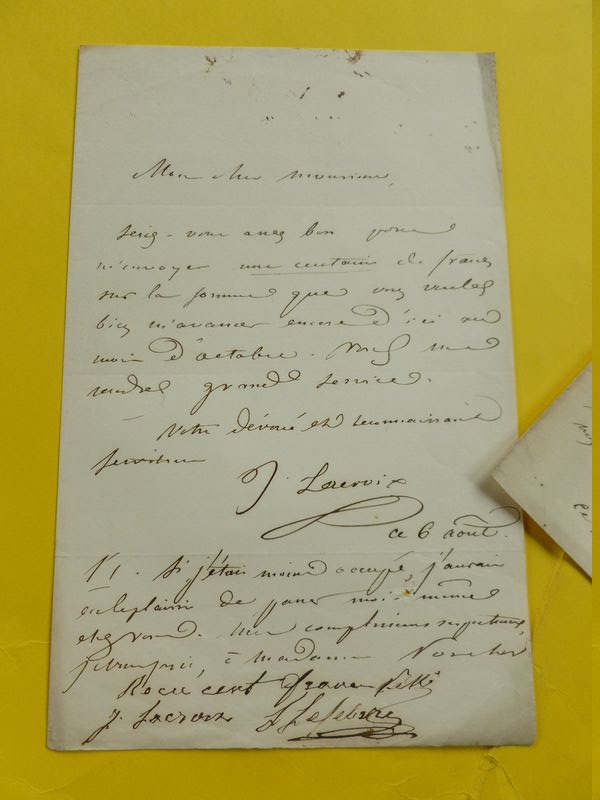 Mon cher monsieur,
Seriez-vous assez bon pour
m'envoyer une centaine de francs
sur la somme que vous voulez
bien m'avancer encore d'ici au
mois d'octobre. Vous me
rendrez grand service.
Votre dévoué et reconnaissant
serviteur
J. Lacroix
ce 6 août.
Si j'étais moins occupé, j'aurais
eu le plaisir de passer moi-même
chez vous. Mes compliments respectueux,
je vous prie, à madame
Reçu cent francs
J. Lacroix L Lefebvre